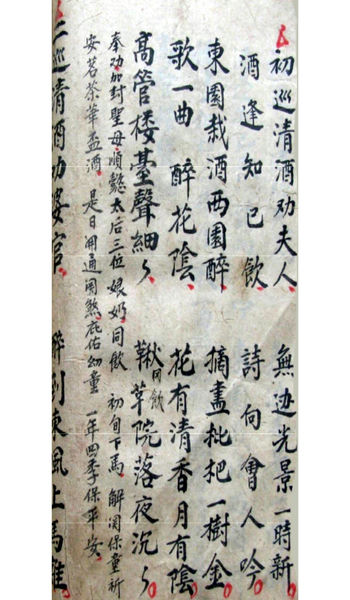 初巡清酒劝夫人 無边光景一時新
酒逢知已飲 詩向會人吟
東園栽酒西園醉 摘盡枇把一樹金
歌一曲 醉花陰 花有清香月有陰
高管楼臺聲細々 鞦同飲草院落夜沉々
奉劝加封聖母 順懿太后三位娘奶同飲 初旬下馬 解関保童祈
安茗茶華盃酒 是日用通用煞 庇佑幼童 一年四季保平安
二巡清酒劝婆官 醉到東風上馬